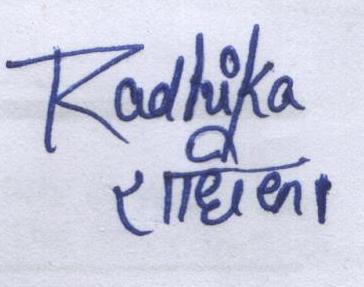 Radhika
राधिका